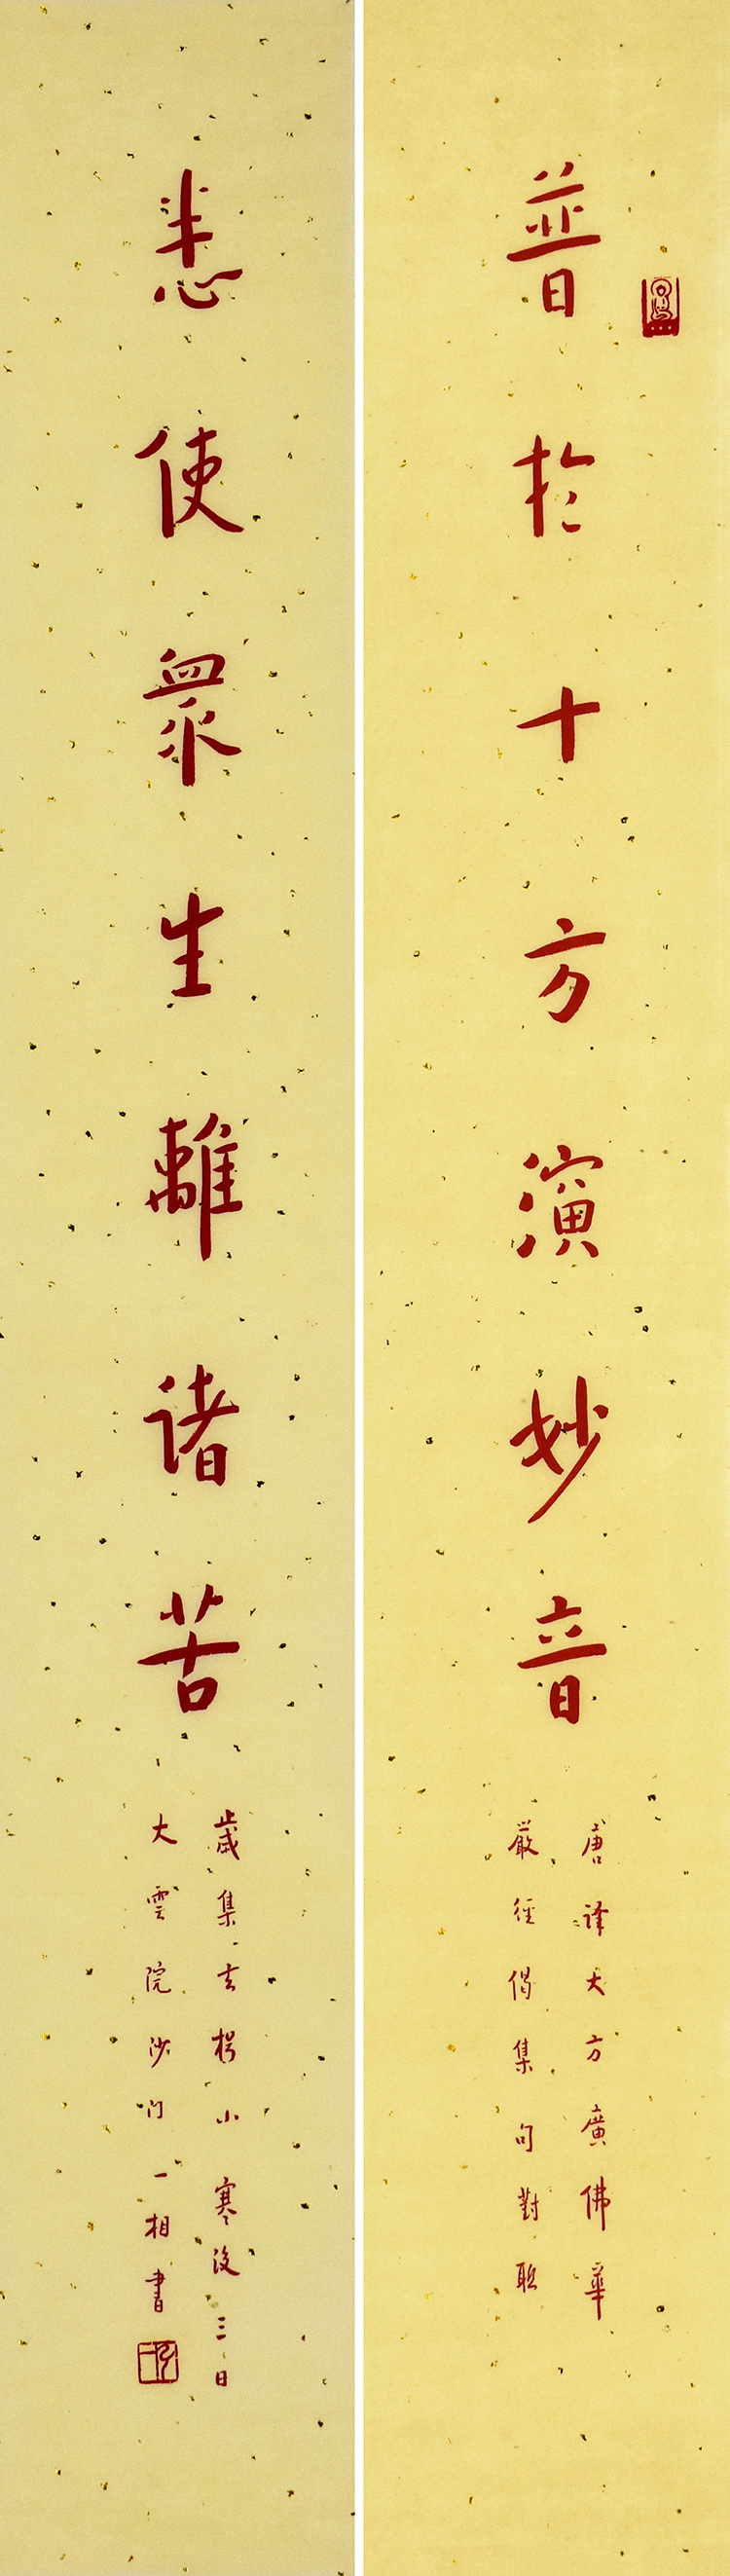 普於十方演妙音
唐译大方廣佛華
嚴経偈集句對联
悉使衆生離諸苦
歲集玄枵小寒後三日
大雲院沙门一相書